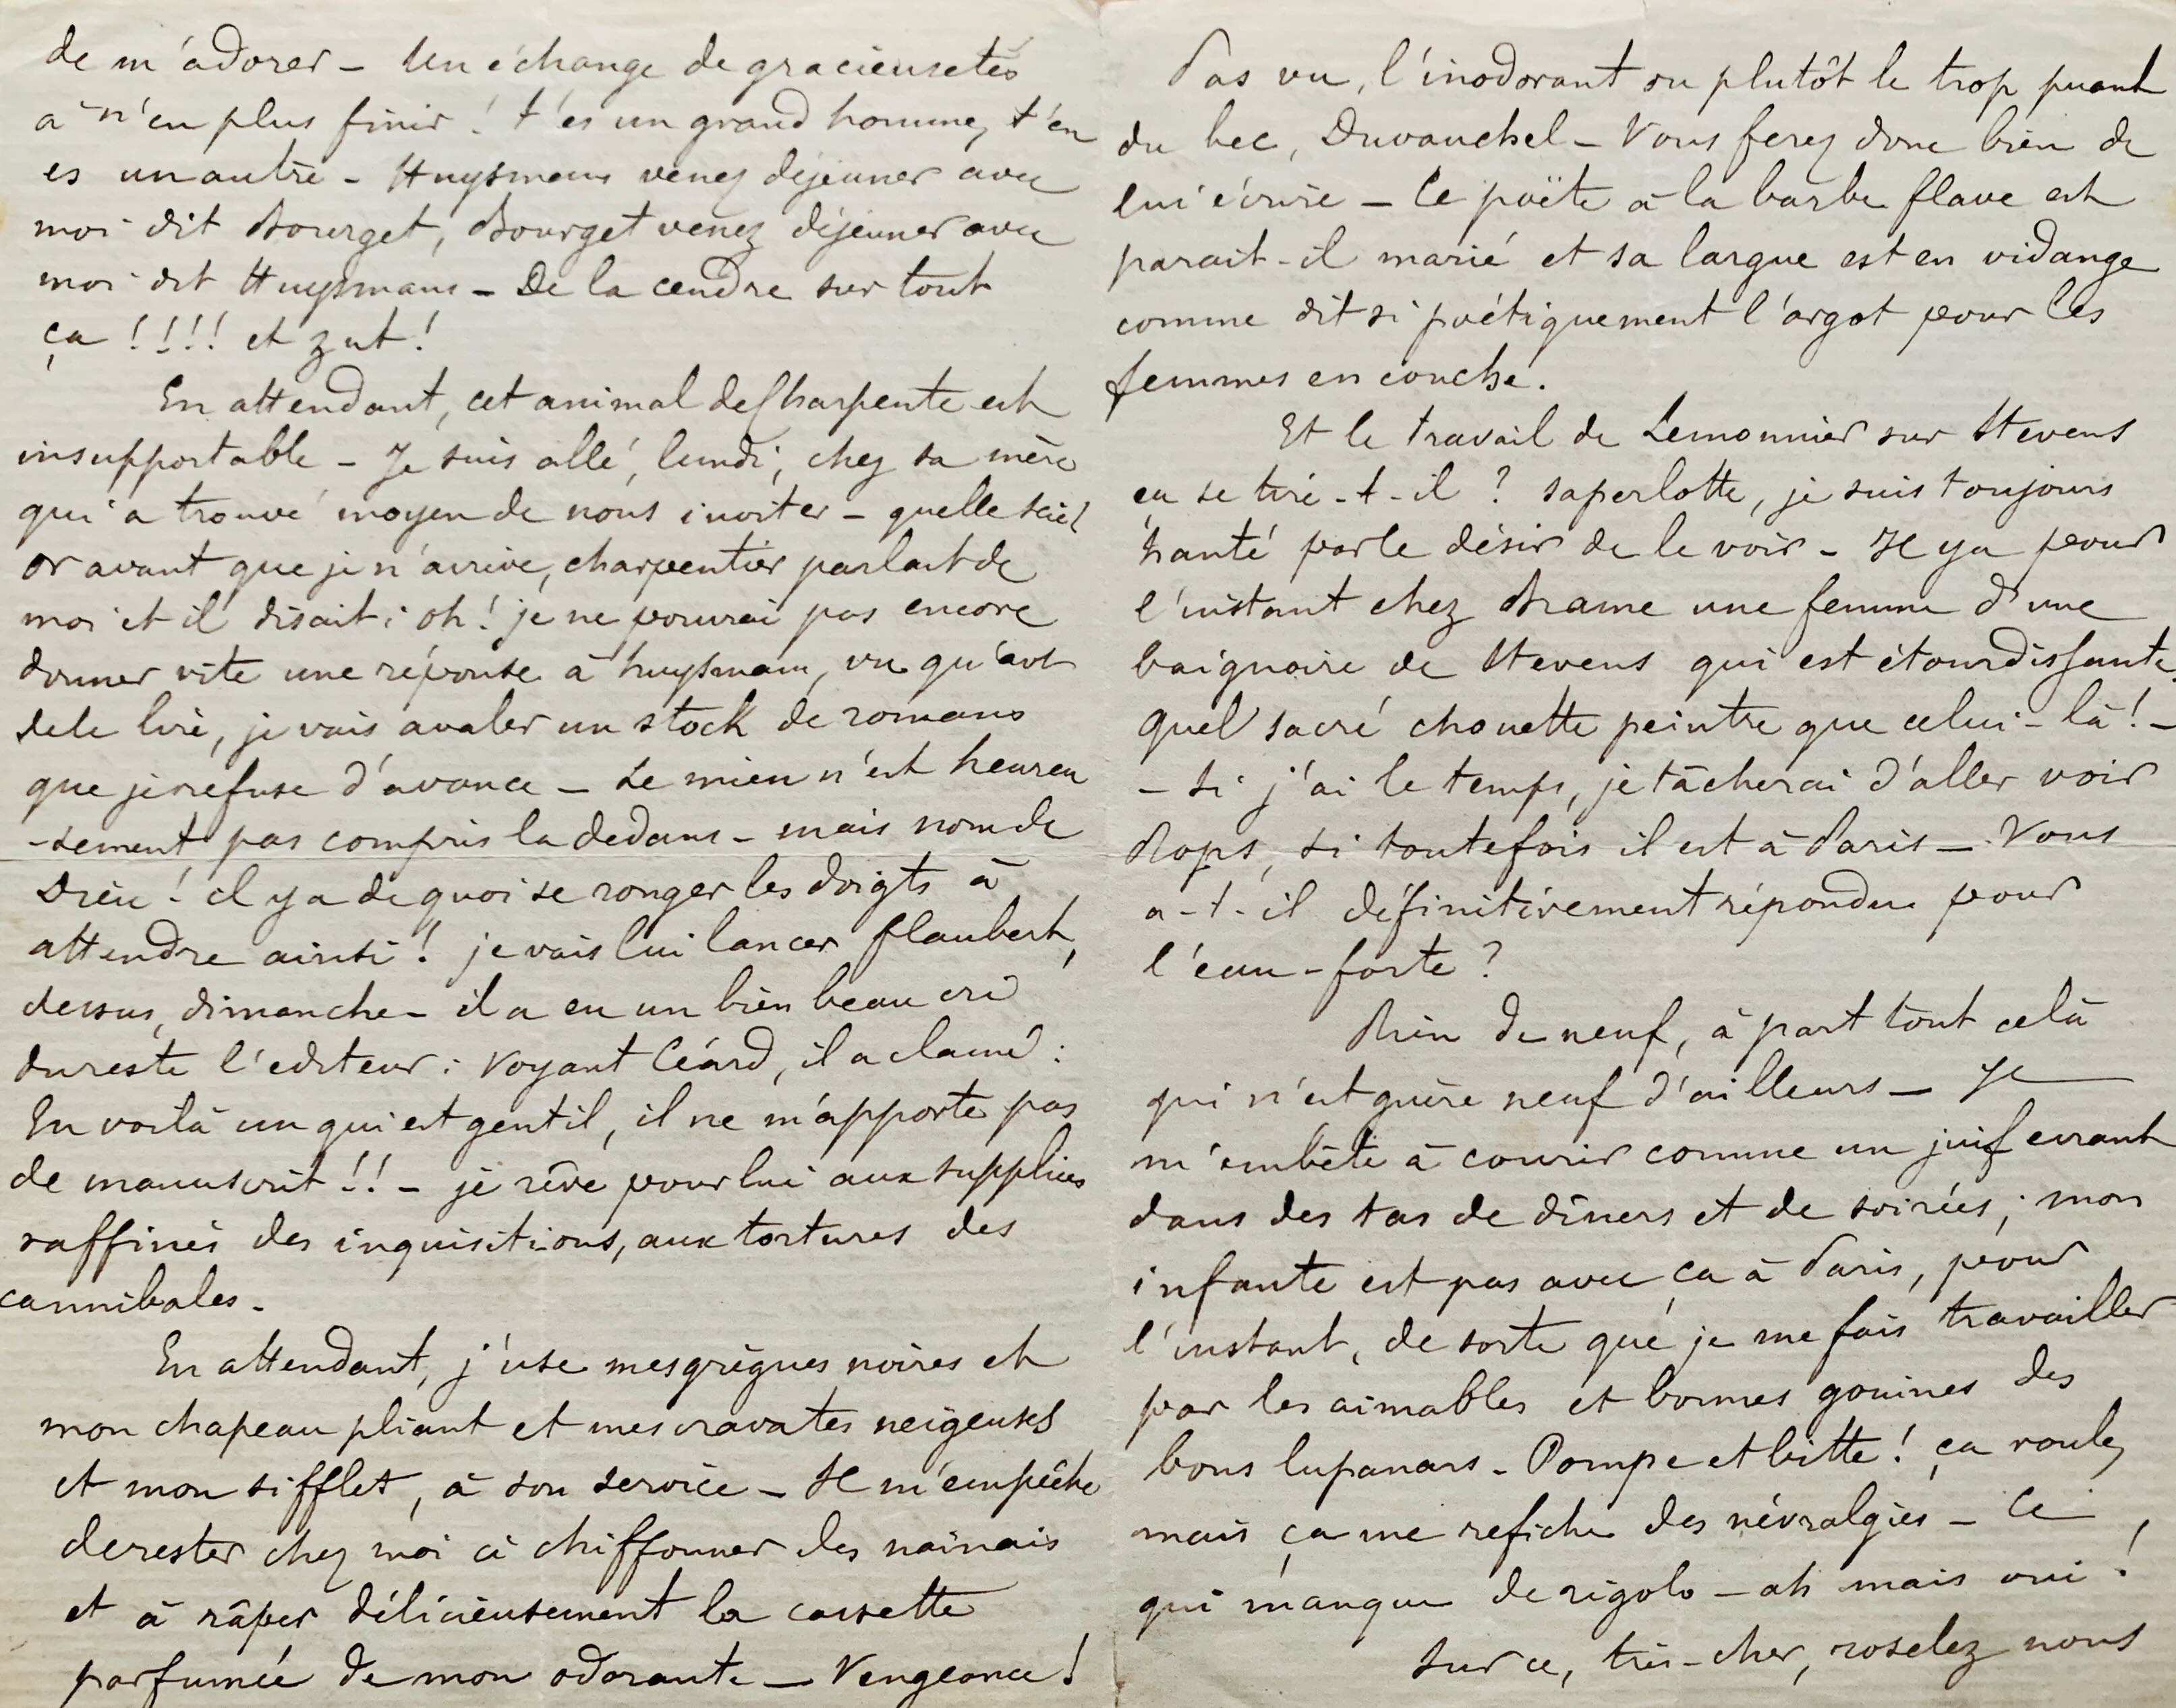 de m'adorer – Un échange de gracieusetés
à n'en plus finir ! t'es un grand homme, t'en
es un autre – Huysmans venez déjeuner avec
moi dit Bourget, Bourget venez déjeuner avec
moi dit Huysmans – De la cendre sur tout
ça !!!! et zut !
En attendant, cet animal de Charpente est
insupportable – Je suis allé, lundi, chez sa mère
qui a trouvé moyen de nous inviter – quelle scie !
or avant que je n'arrive, charpentier parlait de
moi et il disait : oh ! je ne pourrai pas encore
donner vite une réponse à huysmans, vu qu'avt
de le lire, je vais avaler un stock de romans
que je refuse d'avance – Le mien n'est heureu
-sement pas compris la dedans – mais nom de
Dieu ! il y a de quoi se ronger les doigts à
attendre ainsi ! je vais lui lancer flaubert,
dessus, dimanche – il a eu un bien beau cri
du reste l'editeur : Voyant Céard, il a clamé :
En voilà un qui est gentil, il ne m'apporte pas
de manuscrit !! – je rêve pour lui aux supplices
raffinés des inquisitions, aux tortures des
cannibales.
En attendant, j'use mes grègues noires et
mon chapeau pliant et mes cravates neigeuses
et mon sifflet, à son service – Il m'empêche
de rester chez moi à chiffonner des nainais
et à râper délicieusement la cassette
parfumée de mon odorante – Vengeance !
Pas vu, l'inodorant ou plutôt le trop puant
du bec, Duvauchel – Vous ferez donc bien de
lui écrire – Ce poëte à la barbe flave est
parait-il marié et sa largue est en vidange
comme dit si poétiquement l'argot pour les
femmes en couche.
Et le travail de Lemonnier sur Stevens
ça se tire-t-il ? saperlotte, je suis toujours
hanté par le désir de le voir – Il y a pour
l'instant chez Brame une femme d'une
baignoire de Stevens qui est étourdissante.
Quel sacré chouette peintre que celui-là ! –
– Si j'ai le temps, je tâcherai d'aller voir
Rops, si toutefois il est à Paris – Vous
a-t-il définitivement répondu pour
l'eau-forte ?
Rien de neuf, à part tout celà
qui n'est guère neuf d'ailleurs – Je
m'embête à courir comme un juif errant
dans des tas de dîners et de soirées ; mon
infante est pas avec ça à Paris, pour
l'instant, de sorte que je me fais travailler
par les aimables et bonnes gouines des
bons lupanars – Pompe et bitte ! ça roule,
mais ça me refiche des névralgies – Ce
qui manque de rigolo – ah mais oui !
Sur ce, très-cher, roselez nous